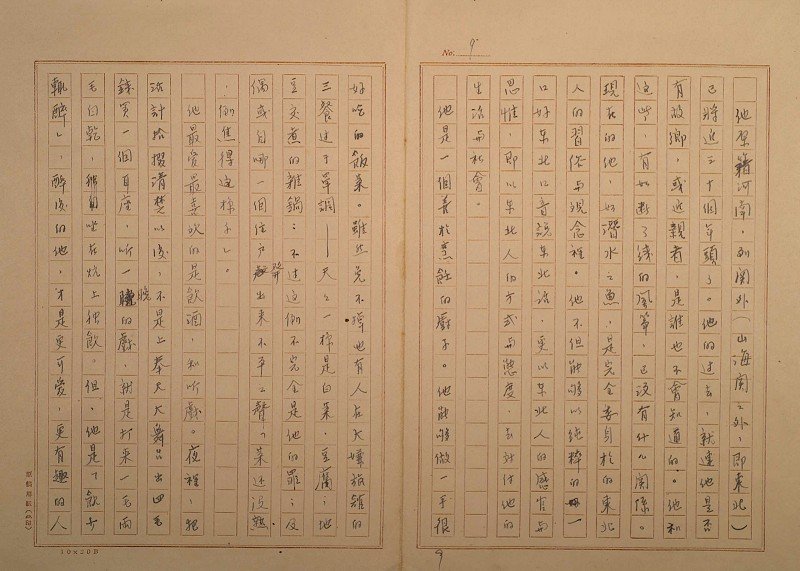 No. 9
他原籍河南，到關外（山海關之外，即東北）
已將近三十個年頭了。他的過去，就連他是否
有故鄉，或近親者，是誰也不會知道的。他和
這些，有如斷了綫的風箏，已沒有什么關係。
現在的他，如潛水之魚，是完全委身於的東北
人的習俗与現念裡。他不但能够以純粹的一
口好東北口音說東北話，更以東北人的感官与
思惟，即以東北人的方式与態度，去對付他的
生活与社會。
他是一個善於烹飪的廚子。他能够做一手很
9
好吃的飯菜。雖然免不掉也有人在大嬸旅館的
三餐过于單調——天天一樣是白菜，豆腐，地
豆交煮的雜鍋；不过這倒不完全是他的罪；反
偶或自哪一個住戶發出來不平之聲「菜还沒熟
，倒焦得这樣子」。
他最愛最喜欢的是飲酒，和听戲。夜裡，把
活計拾掇清楚以後，不是上奉天大舞台出四毛
錢買一個耳座，听一晚的戲，就是打来一毛兩
毛白乾，獨自坐在炕上獨飲。但，他是「飲少
輒醉」，醉後的他，才是更可愛，更有趣的人
10×20B